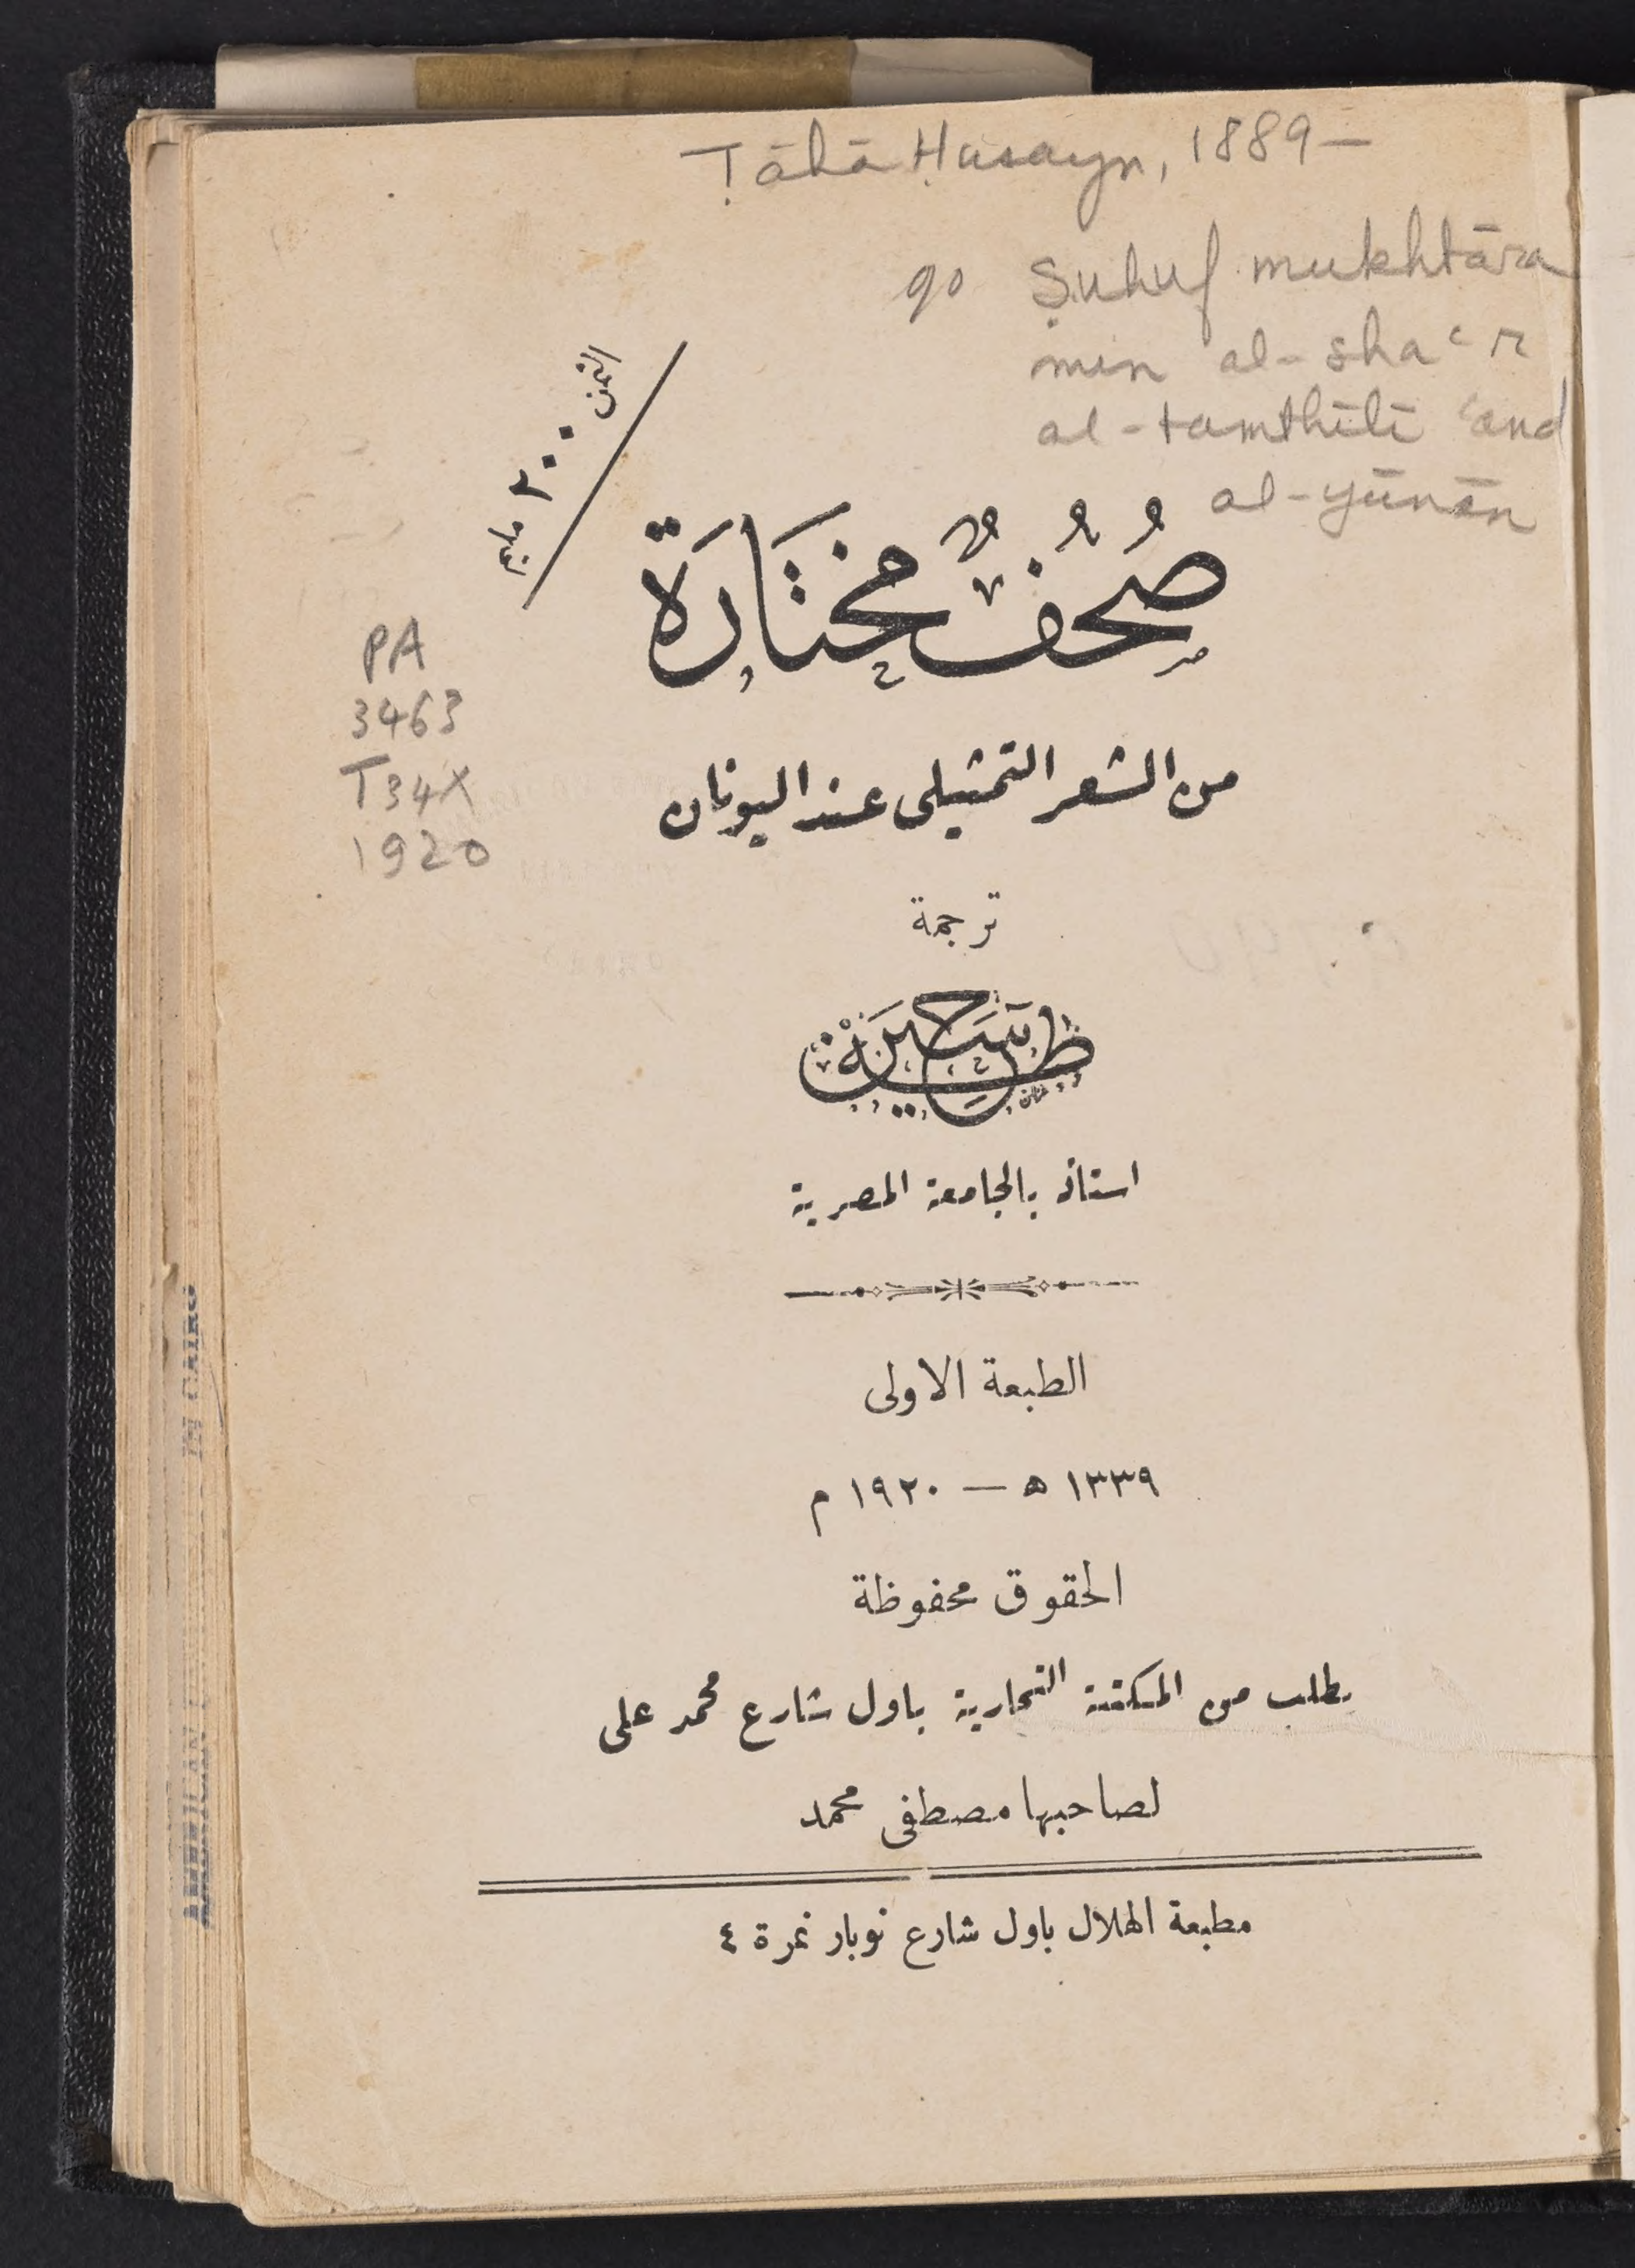 Ṭāhā Ḥusayn, 1889-
go Ṣuhuf mukhtāra
min al-shaʿr
al-tamthīlī ʿand
al-yūnān
الثمن ٢٠٠ مليم
PA
3463
T34X
1920
صُحُفٌ مختَارَة
من الشعر التمثيلى عند اليونان
ترجمة
طه حسين
استاذ بالجامعة المصرية
الطبعة الاولى
١٣٣٩ ه — ١٩٢٠ م
الحقوق محفوظة
يطلب من المكتبة التجارية باول شارع محمد على
لصاحبها مصطفى محمد
مطبعة الهلال باول شارع نوبار نمرة ٤
IN CAIRO